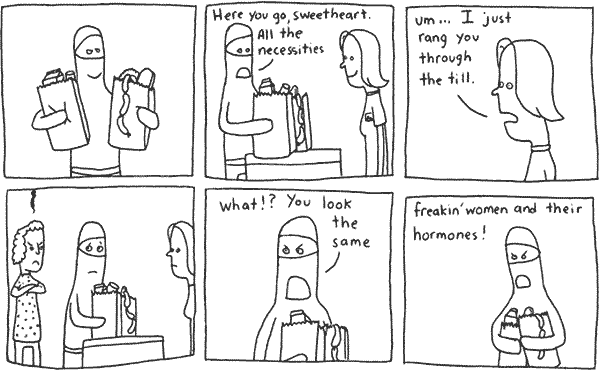 Here you go, sweetheart.
All the
necessities
um... I just
rang you
through
the till.
What!? You look
the
same
freakin' women and their
hormones!